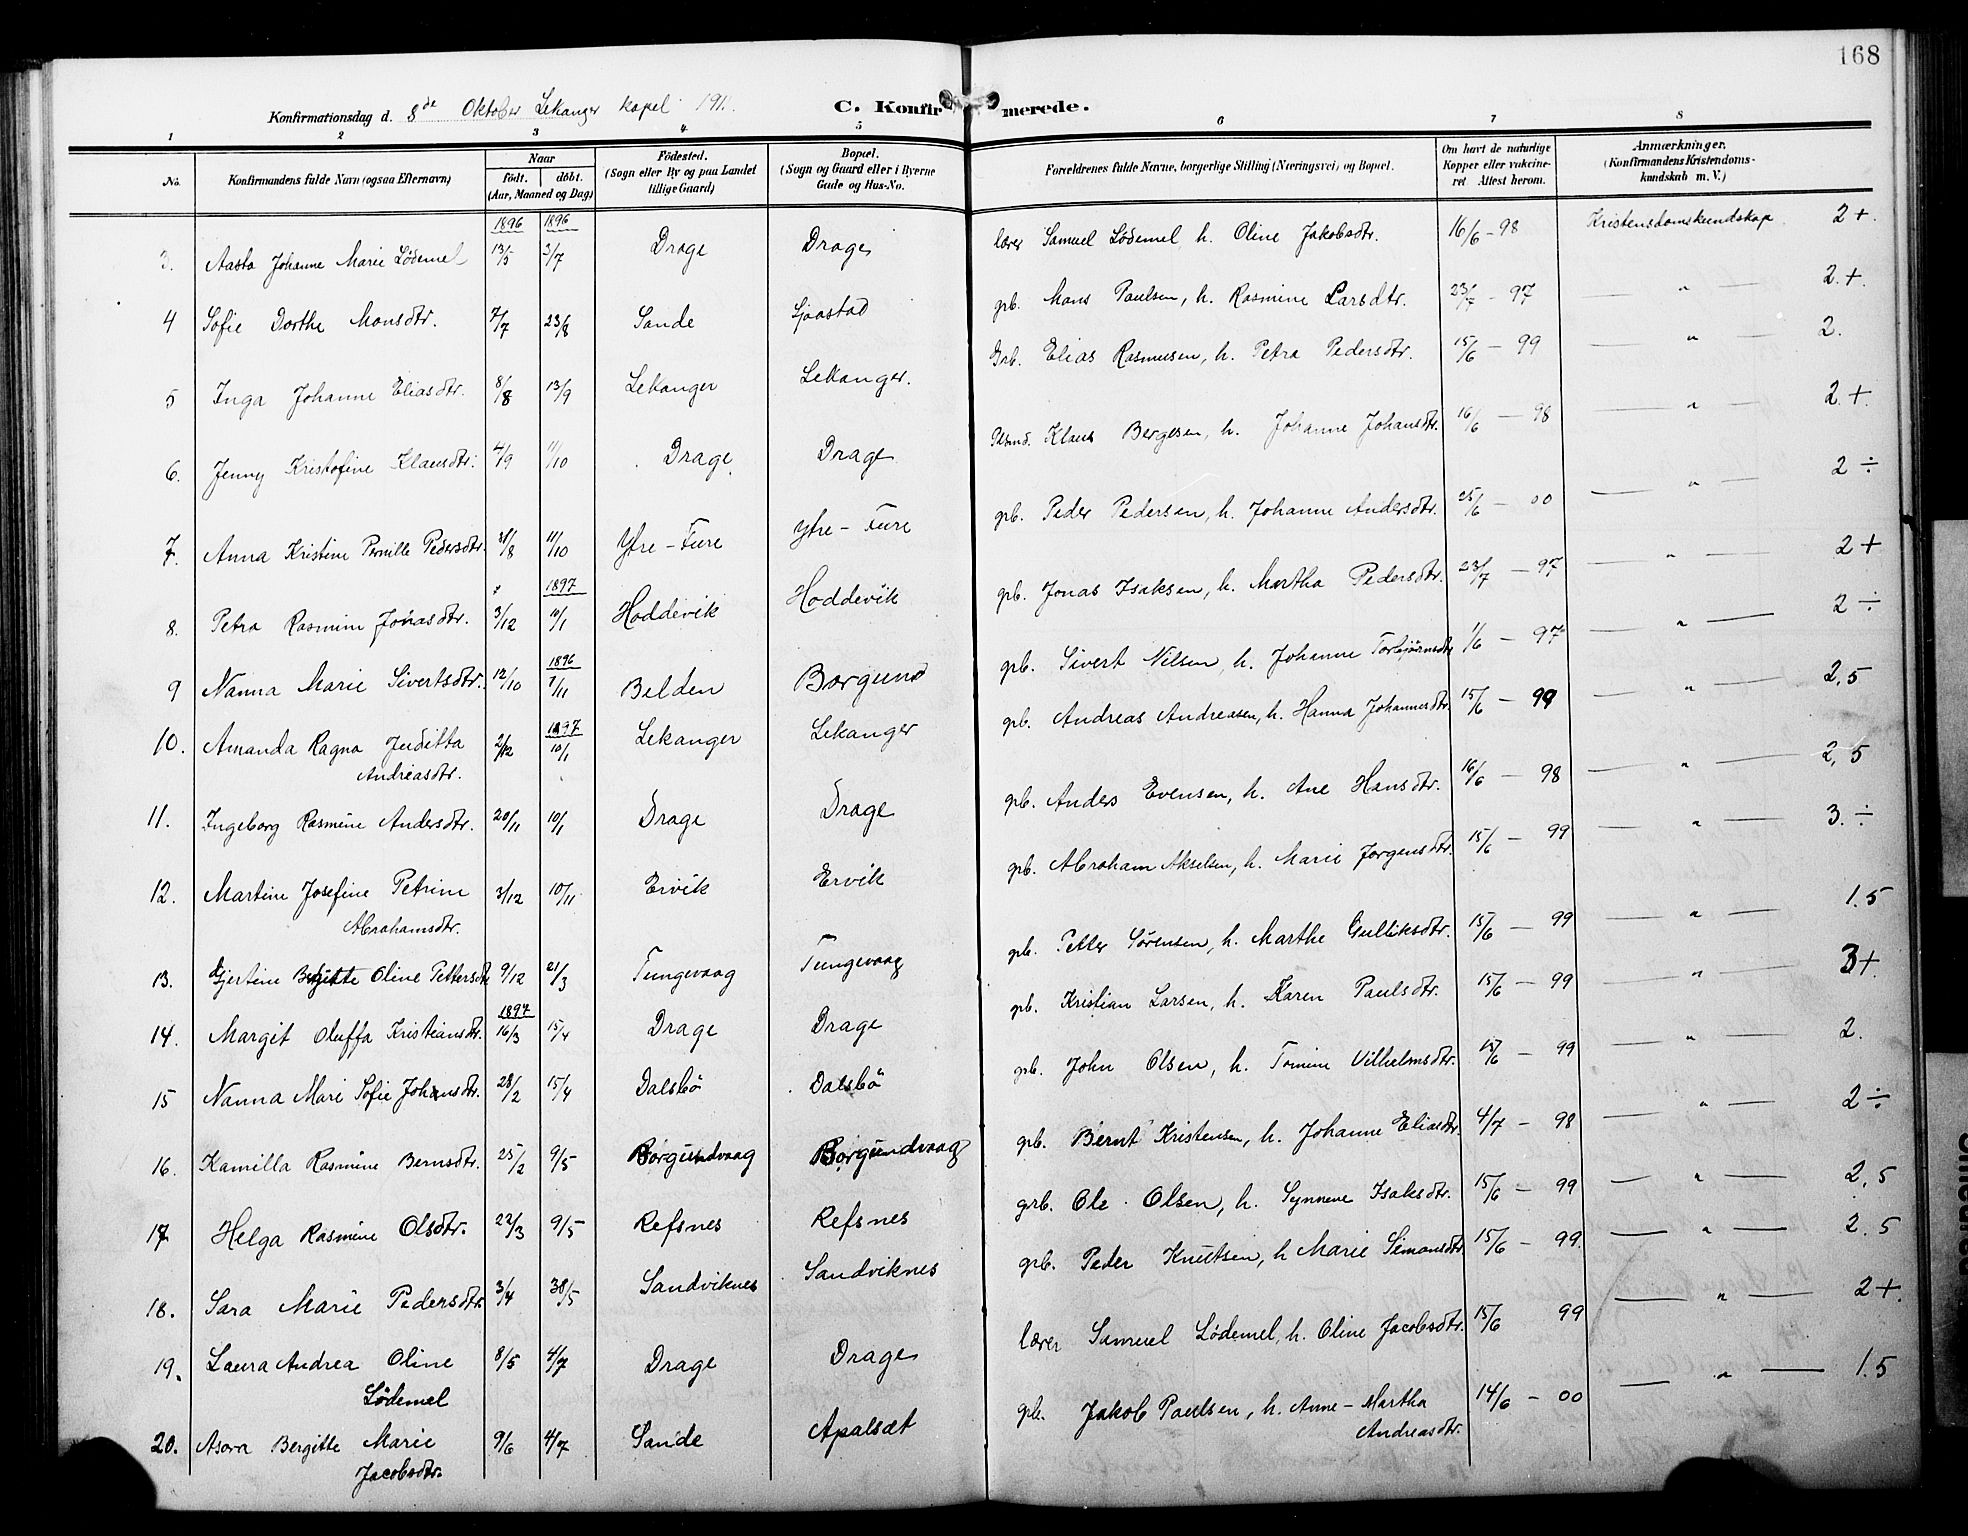 168
Konfirmationsdag d. 8de Oktober Lekanger kapel 191
C. Konfirmerede.
1 2 3 4 5 6 7 8
No. Konfirmandens fulde Navn (ogsaa Efternavn) Naar født. døbt. (Aar, Maaned og Dag) Fødested. (Sogn eller By og paa Landet tillige Gaard) Bopæl. (Sogn og Gaard eller i Byerne Gade og Hus-No. Forældrenes fulde Navne, borgerlige Stilling (Næringsvei) og Bopæl. Om havt de naturlige Kopper eller vakcineret Attest herom. Anmærkninger. (Konfirmandens Kristendomskundskab m. V.)
1896 1896
3. Aasta Johanne Marie Lødemel 13/5 3/7 Drage Drage lærer Samuel Lødemel, h. Oline Jakobsdtr. 16/6 - 98 Kristensdomskundskap 2+.
4 Sofie Dorthe Monsdtr. 7/7 23/8 Sande Sjaastad gb. Mons Paulsen, h. Rasmine Larsdtr. 23/7 - 97 — " — 2+.
5 Inga Johanne Eliasdtr. 8/8 13/9 Lekanger Lekanger. Grb. Elias Rasmusen, h. Petra Pedersdtr. 15/6 - 99 — " — 2.
6. Jenny Kristofine Klausdtr. 4/9 11/10 Drage Drage Klaus Bergesen, h. Johanne Johansdtr. 16/6 - 98 — " — 2+.
7. Anna Kristine Pernille Pedersdtr. 31/8 11/10 Ytre - Fure Ytre - Fure gb. Peder Pedersen, h. Johanne Andersdtr. 25/6 - 00 — " — 2 ÷
" 1897
8. Petra Rasmine Jonasdtr. 3/12 10/1 Hoddevik Hoddevik gb. Jonas Isaksen, h. Martha Pedersdtr. 23/7 - 97 — " — 2+
1896
9 Nanna Marie Sivertsdtr. 12/10 1/11 Belden Borgund gb. Sivert Nilsen, h. Johanne Torbjørnsdtr 1/6 - 97 — " — 2 ÷
1897
10. Amanda Ragna Juditta 2/12 10/1 Lekanger Lekanger gb. Andreas Andreasen, h. Hanna Johannesdtr. 15/6 - 99 — " — 2,5
Andreasdtr.
11. Ingeborg Rasmine Andersdtr. 20/11 10/1 Drage Drage gb. Anders Evensen, h. Ane Hansdtr. 16/6 - 98 — " — 2,5
12. Martine Josefine Petrine 3/12 10/11 Ervik Ervik gb. Abraham Akselsen, h. Marie Jørgensdtr. 15/6 - 99 — " — 3. ÷
Abrahamsdtr.
13. Gjertine Bergitte Oline Pettersdtr 9/12 21/3 Tungevaag Tungevaag gb. Petter Sørensen, h. Marthe Gulliksdtr. 15/6 - 99 — " — 1.5
1897
14. Margit Oluffa Kristiansdtr. 16/3 15/4 Drage Drage gb. Kristian Larsen, h. Karen Paulsdtr. 15/6 - 99 — " — 3+.
15 Nanna Mari Sofie Johansdtr. 28/2 15/4 Dalsbø Dalsbø gb. John Olsen, h. Tomine Vilhelmsdtr. 15/6 - 99 — " — 2.
16. Kamilla Rasmine Bernsdtr. 25/2 9/5 Borgundvaag Borgundvaag gb. Bernt Kristensen, h. Johanne Eliasdtr. 4/7 - 98 — " — 2 ÷
17 Helga Rasmine Olsdtr. 22/3 9/5 Refsnes Refsnes grb. Ole Olsen, h. Synneve Isaksdtr. 15/6 - 99 — " — 2,5
18. Sara Marie Pedersdtr 3/4 30/5 Sandviknes Sandviknes grb. Peder Knutsen, h Marie Simonsdtr 15/6 - 99. — " — 2.5
19. Laura Andrea Oline 8/5 4/7 Drage Drage lærer Samuel Lødemel, h. Oline Jacobsdtr. 15/6 99 — " — 2+.
Lødemel
20. Asora Bergitte Marie 9/6 4/7 Sande Apalsæt gb. Jakob Paulsen, h. Anne - Martha 14/6 - 00 — " — 1.5
Jacobsdtr. Andreasdtr.